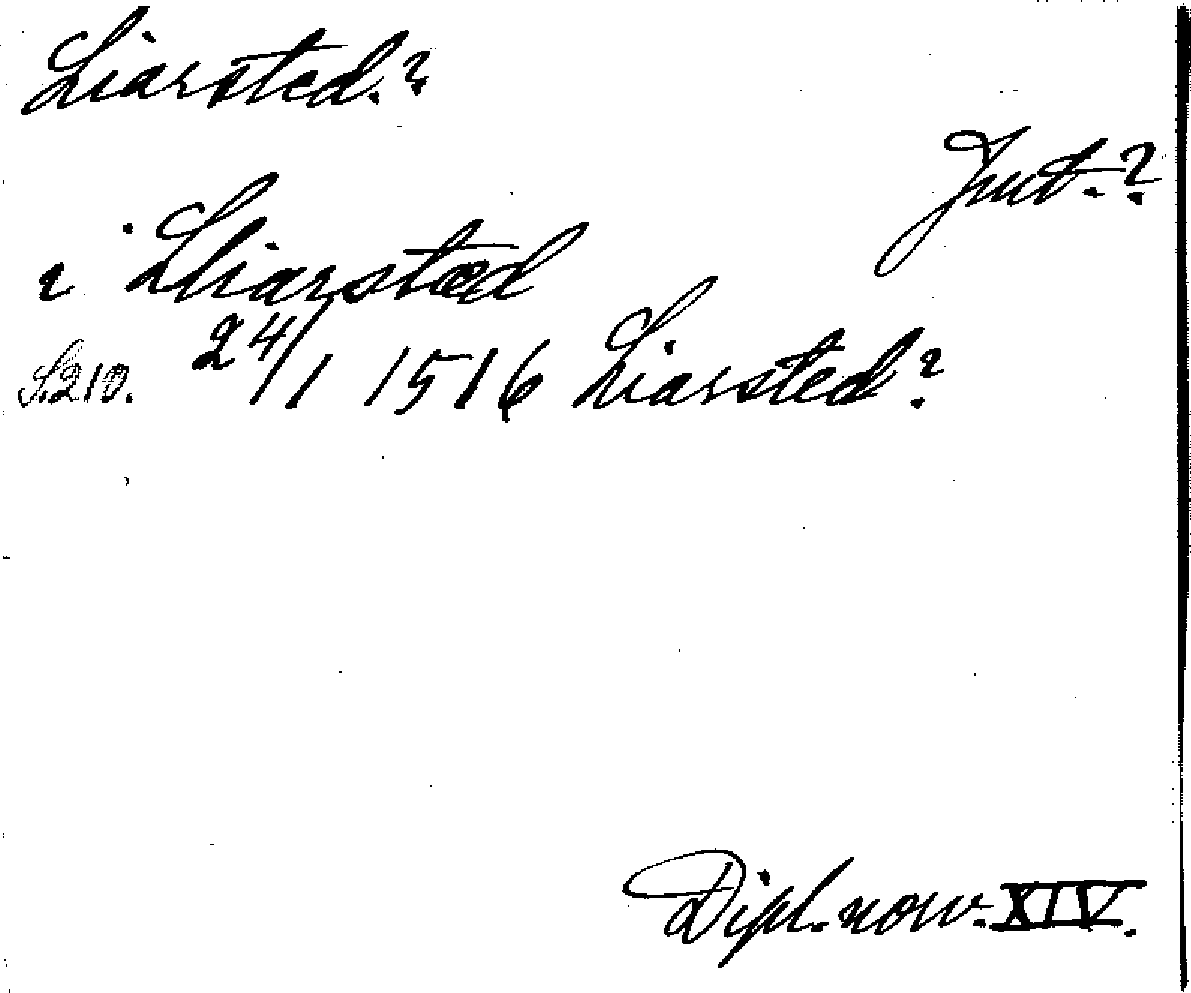 Liarsted.?
Jmt.?
i Lhiarstæd
S.210. 24/1 1516 Liarsted?
Dipl. norv. XIV.